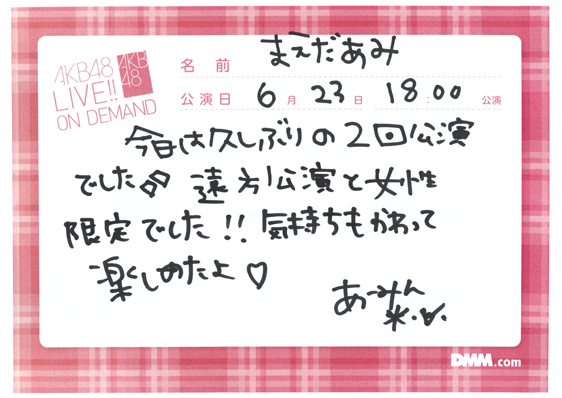 AKB48
LIVE!!
ON DEMAND
AKB
48
名前 まえだあみ
公演日 6月23日 18:00 公演
今日は久しぶりの2回公演
でした 遠方公演と女性
限定でした!! 気持ちもかわって
楽しめたよ♡
あーみん
DMM.com